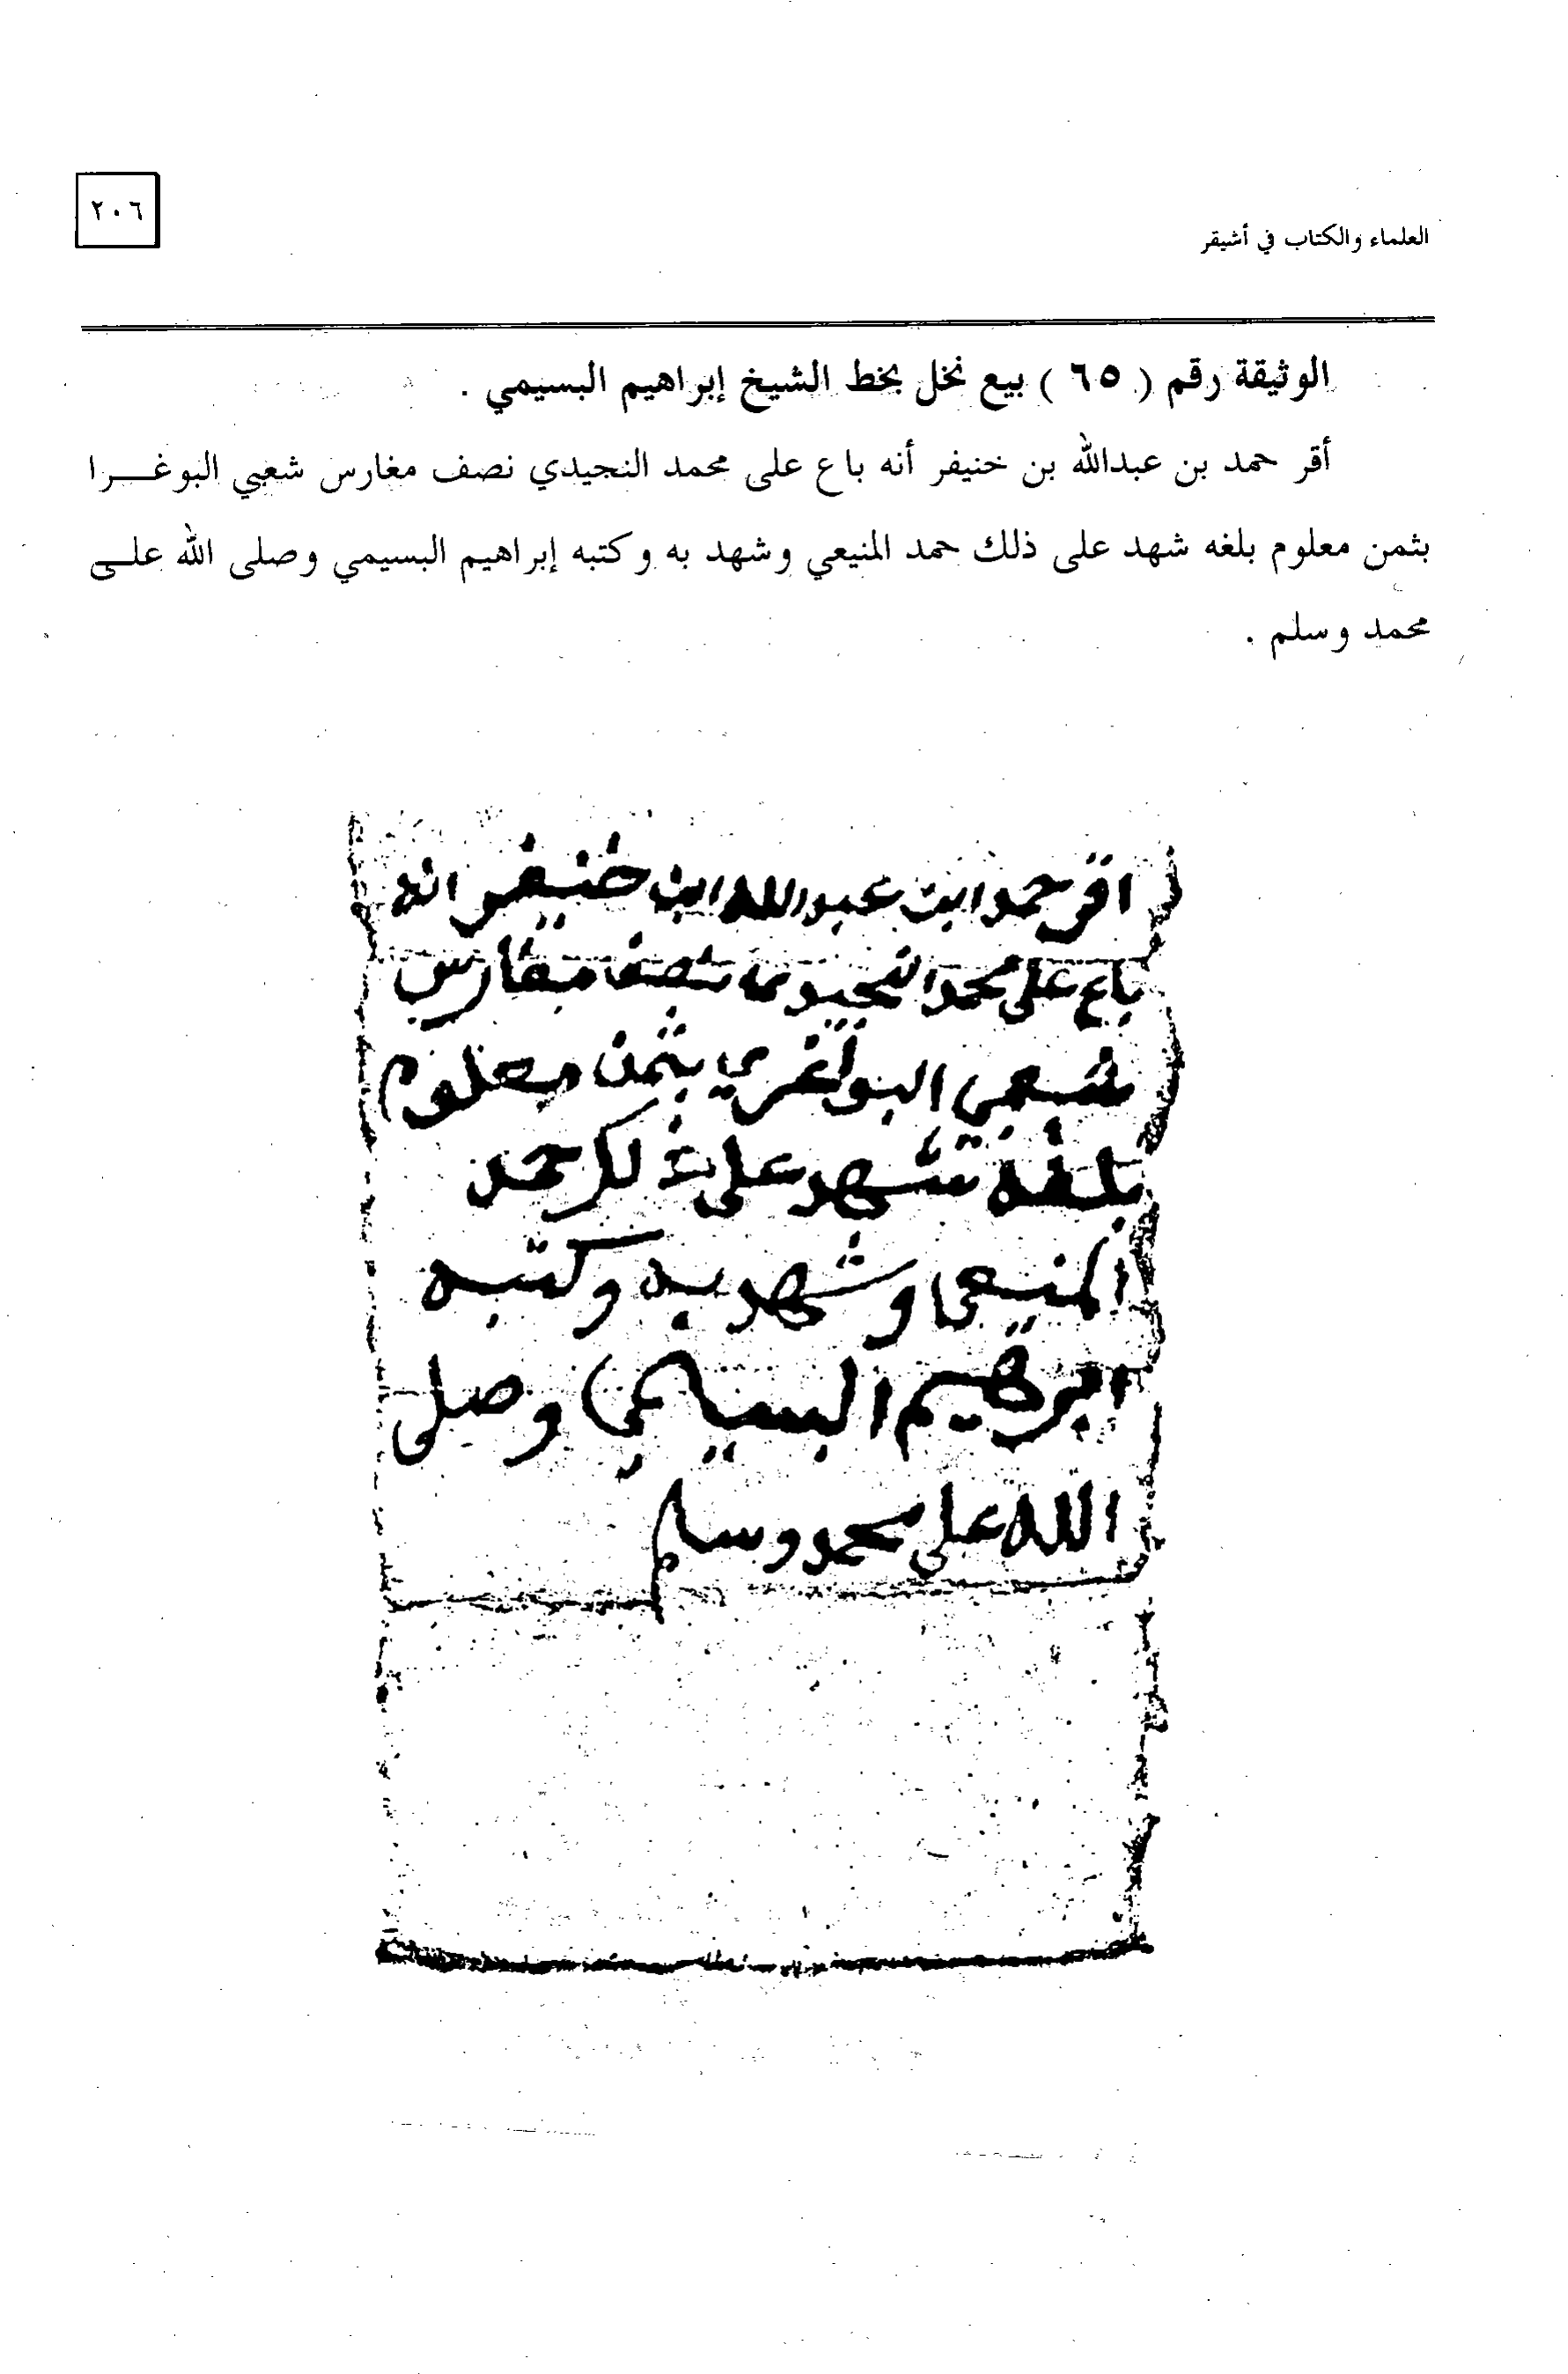 العلماء والكتاب في أشيقر
٢٠٦
الوثيقة رقم ( ٦٥ ) بيع نخل بخط الشيخ إبراهيم البسيمي .
أقر حمد بن عبدالله بن خنيفر أنه باع على محمد النجيدي نصف مغارس شعبي البوغرا
بثمن معلوم بلغه شهد على ذلك حمد المنيعي وشهد به وكتبه إبراهيم البسيمي وصلى الله على
محمد وسلم .
اقر حمد ابن عبد الله ابن خنيفر انه
باع على محمد النجيدي نصف مغارس
شعبي البوغري بثمن معلوم
بلغه شهد على ذلك حمد
المنيعي وشهد به وكتبه
ابرهيم البسيمي وصلى
الله على محمد وسلم